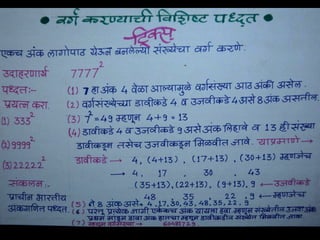 वर्ग करण्याची विशिष्ट पध्दत
ट्रिक्स
एकच अंक लागोपाठ येऊन बनलेल्या संख्येचा वर्ग करणे.
उदाहरणार्थ 7777²
पध्दत:- (1) 7 हा अंक 4 वेळा आल्यामुळे वर्गसंख्या आठ अंकी असेल.
प्रयत्न करा. (2) वर्गसंख्येच्या डावीकडे 4 व उजवीकडे 4 असे 8 अंक असतील.
(1) 333² (3) 7² = 49 म्हणून 4+9 = 13
(2) 9999² (4) डावीकडे 4 व उजवीकडे 9 असे अंक लिहावे व 13 ही संख्या
डावीकडून तसेच उजवीकडून मिळवीत जावे. याप्रमाणे
(3) 22222² डावीकडे → 4, (4+13), (17+13), (30+13) म्हणजेच
4, 17, 30, 43
संकलन:- (35+13), (22+13), (9+13), 9 ← उजवीकडे
प्राचीन भारतीय 48 35 22 9 ← म्हणजेच
अंकगणित पध्दत (5) ते 8 अंक असे → 4, 17, 30, 43, 48, 35, 22, 9
(6) परंतु प्रत्येक जागी एकेकच अंक यायला हवा म्हणून संख्येतील
(7)